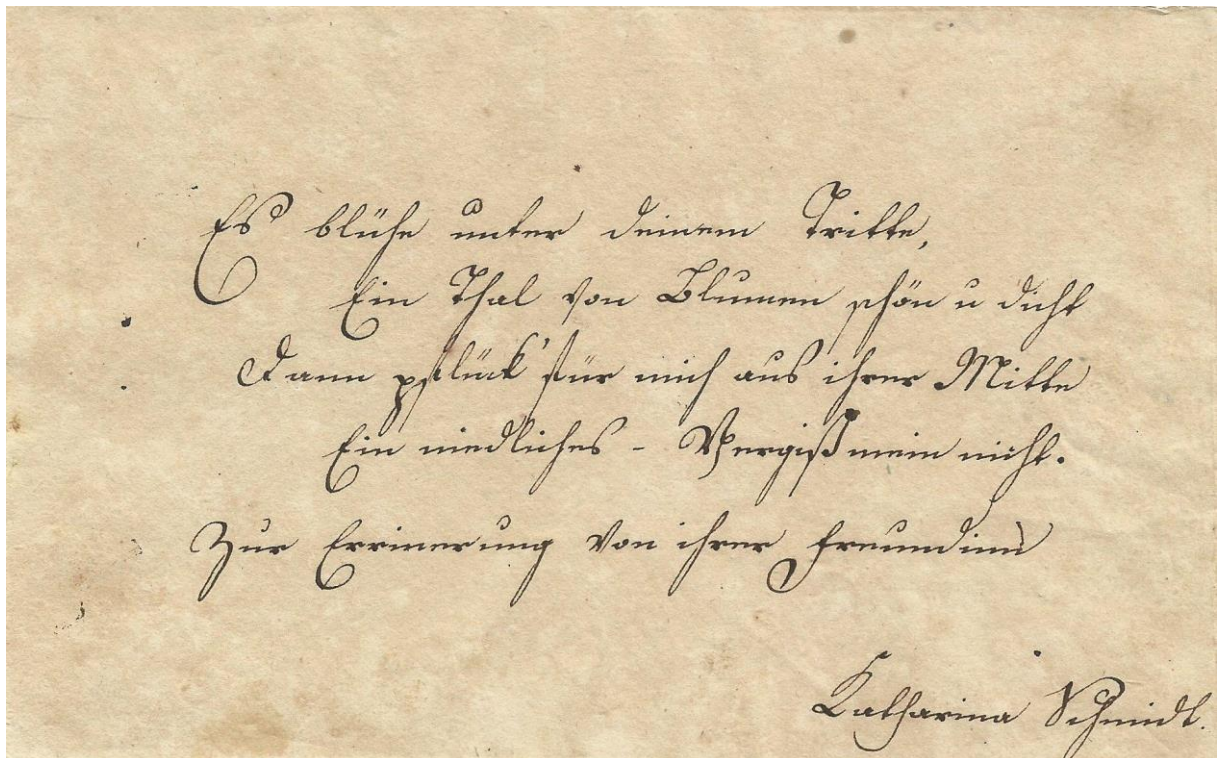 Es blühe unter deinem Tritte,
Ein Thal von Blumen schön u dicht
Dann pflück' für mich aus ihrer Mitte
Ein niedliches - Vergißmein nicht.
Zur Errinerung von ihrer Freundinn
Katharina Schmidt.